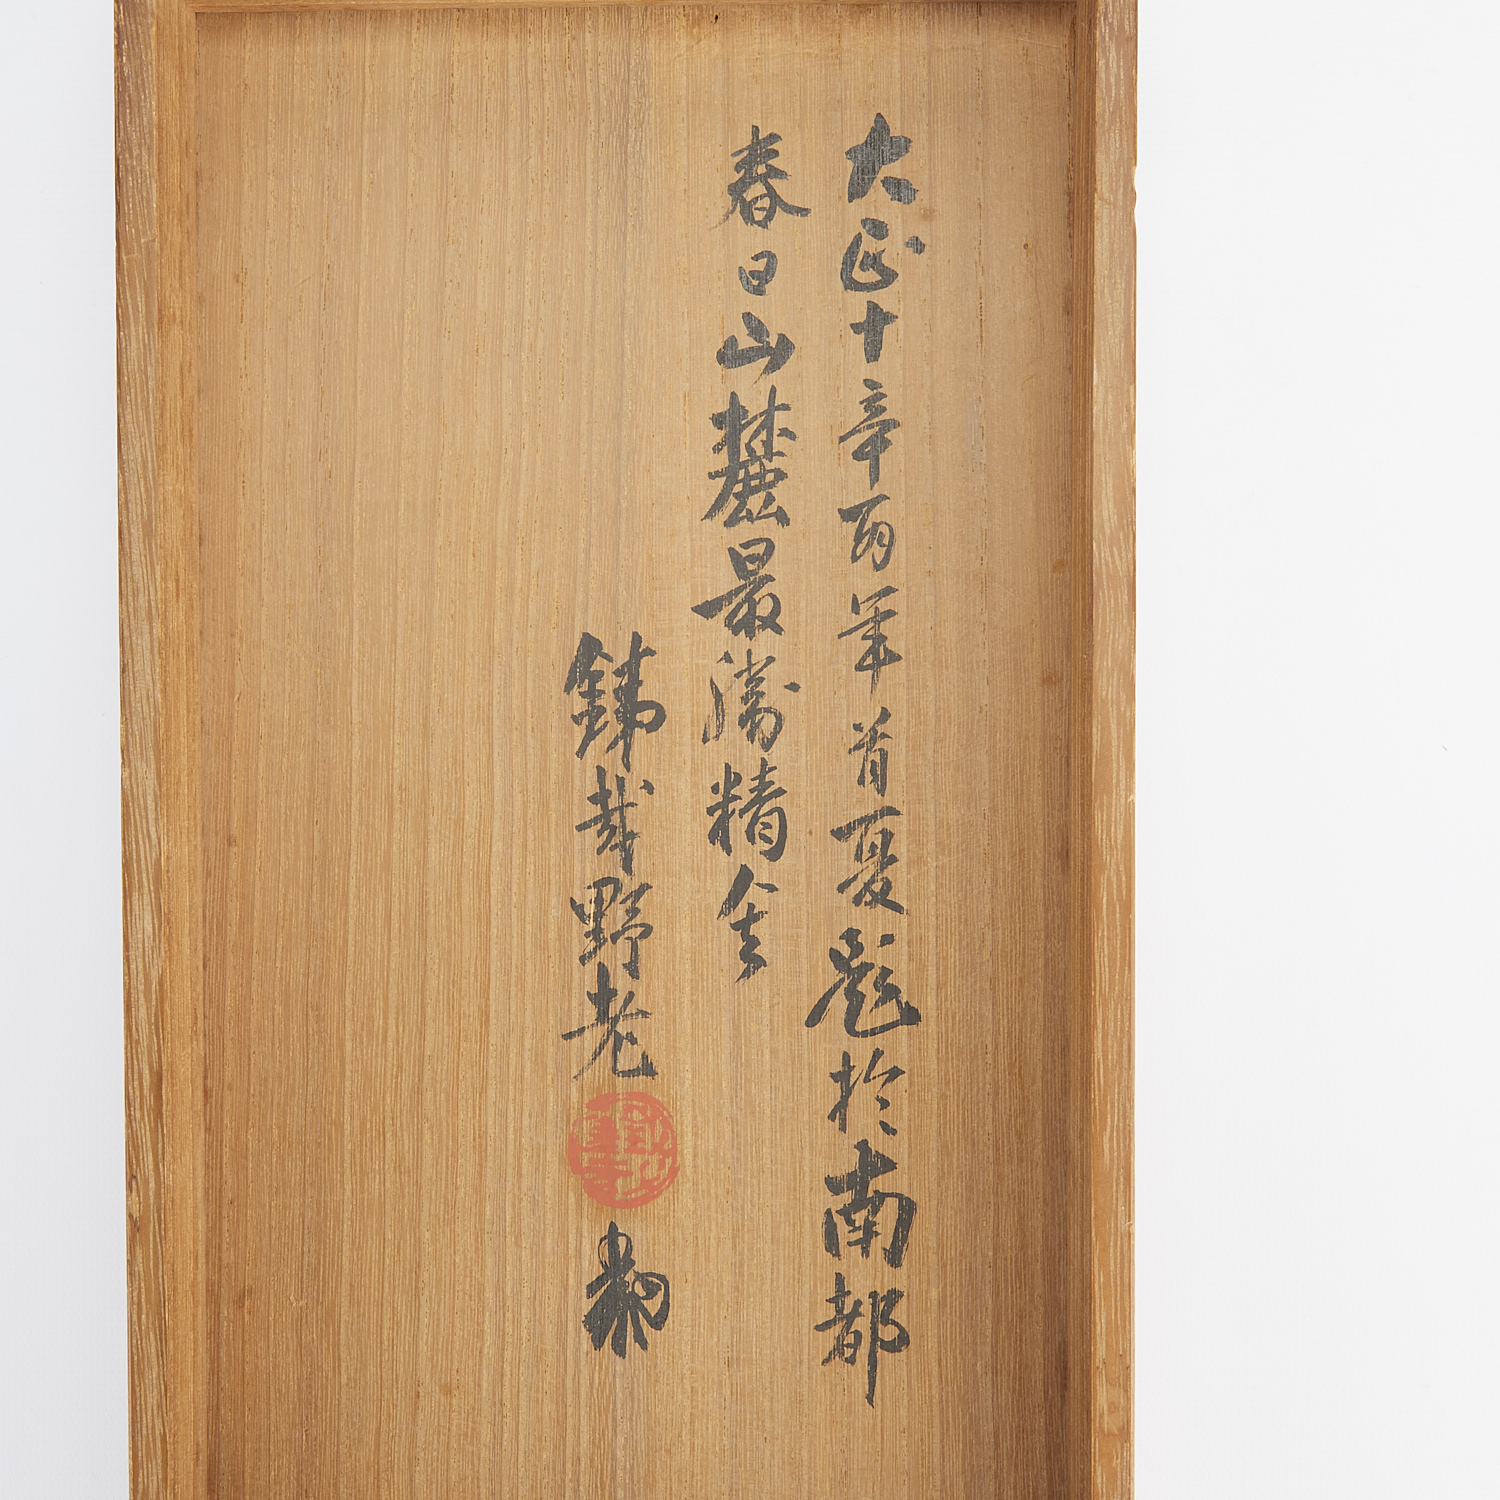 大正十辛酉年首夏題於南都
春日山麓最勝精舍
銕哉野老